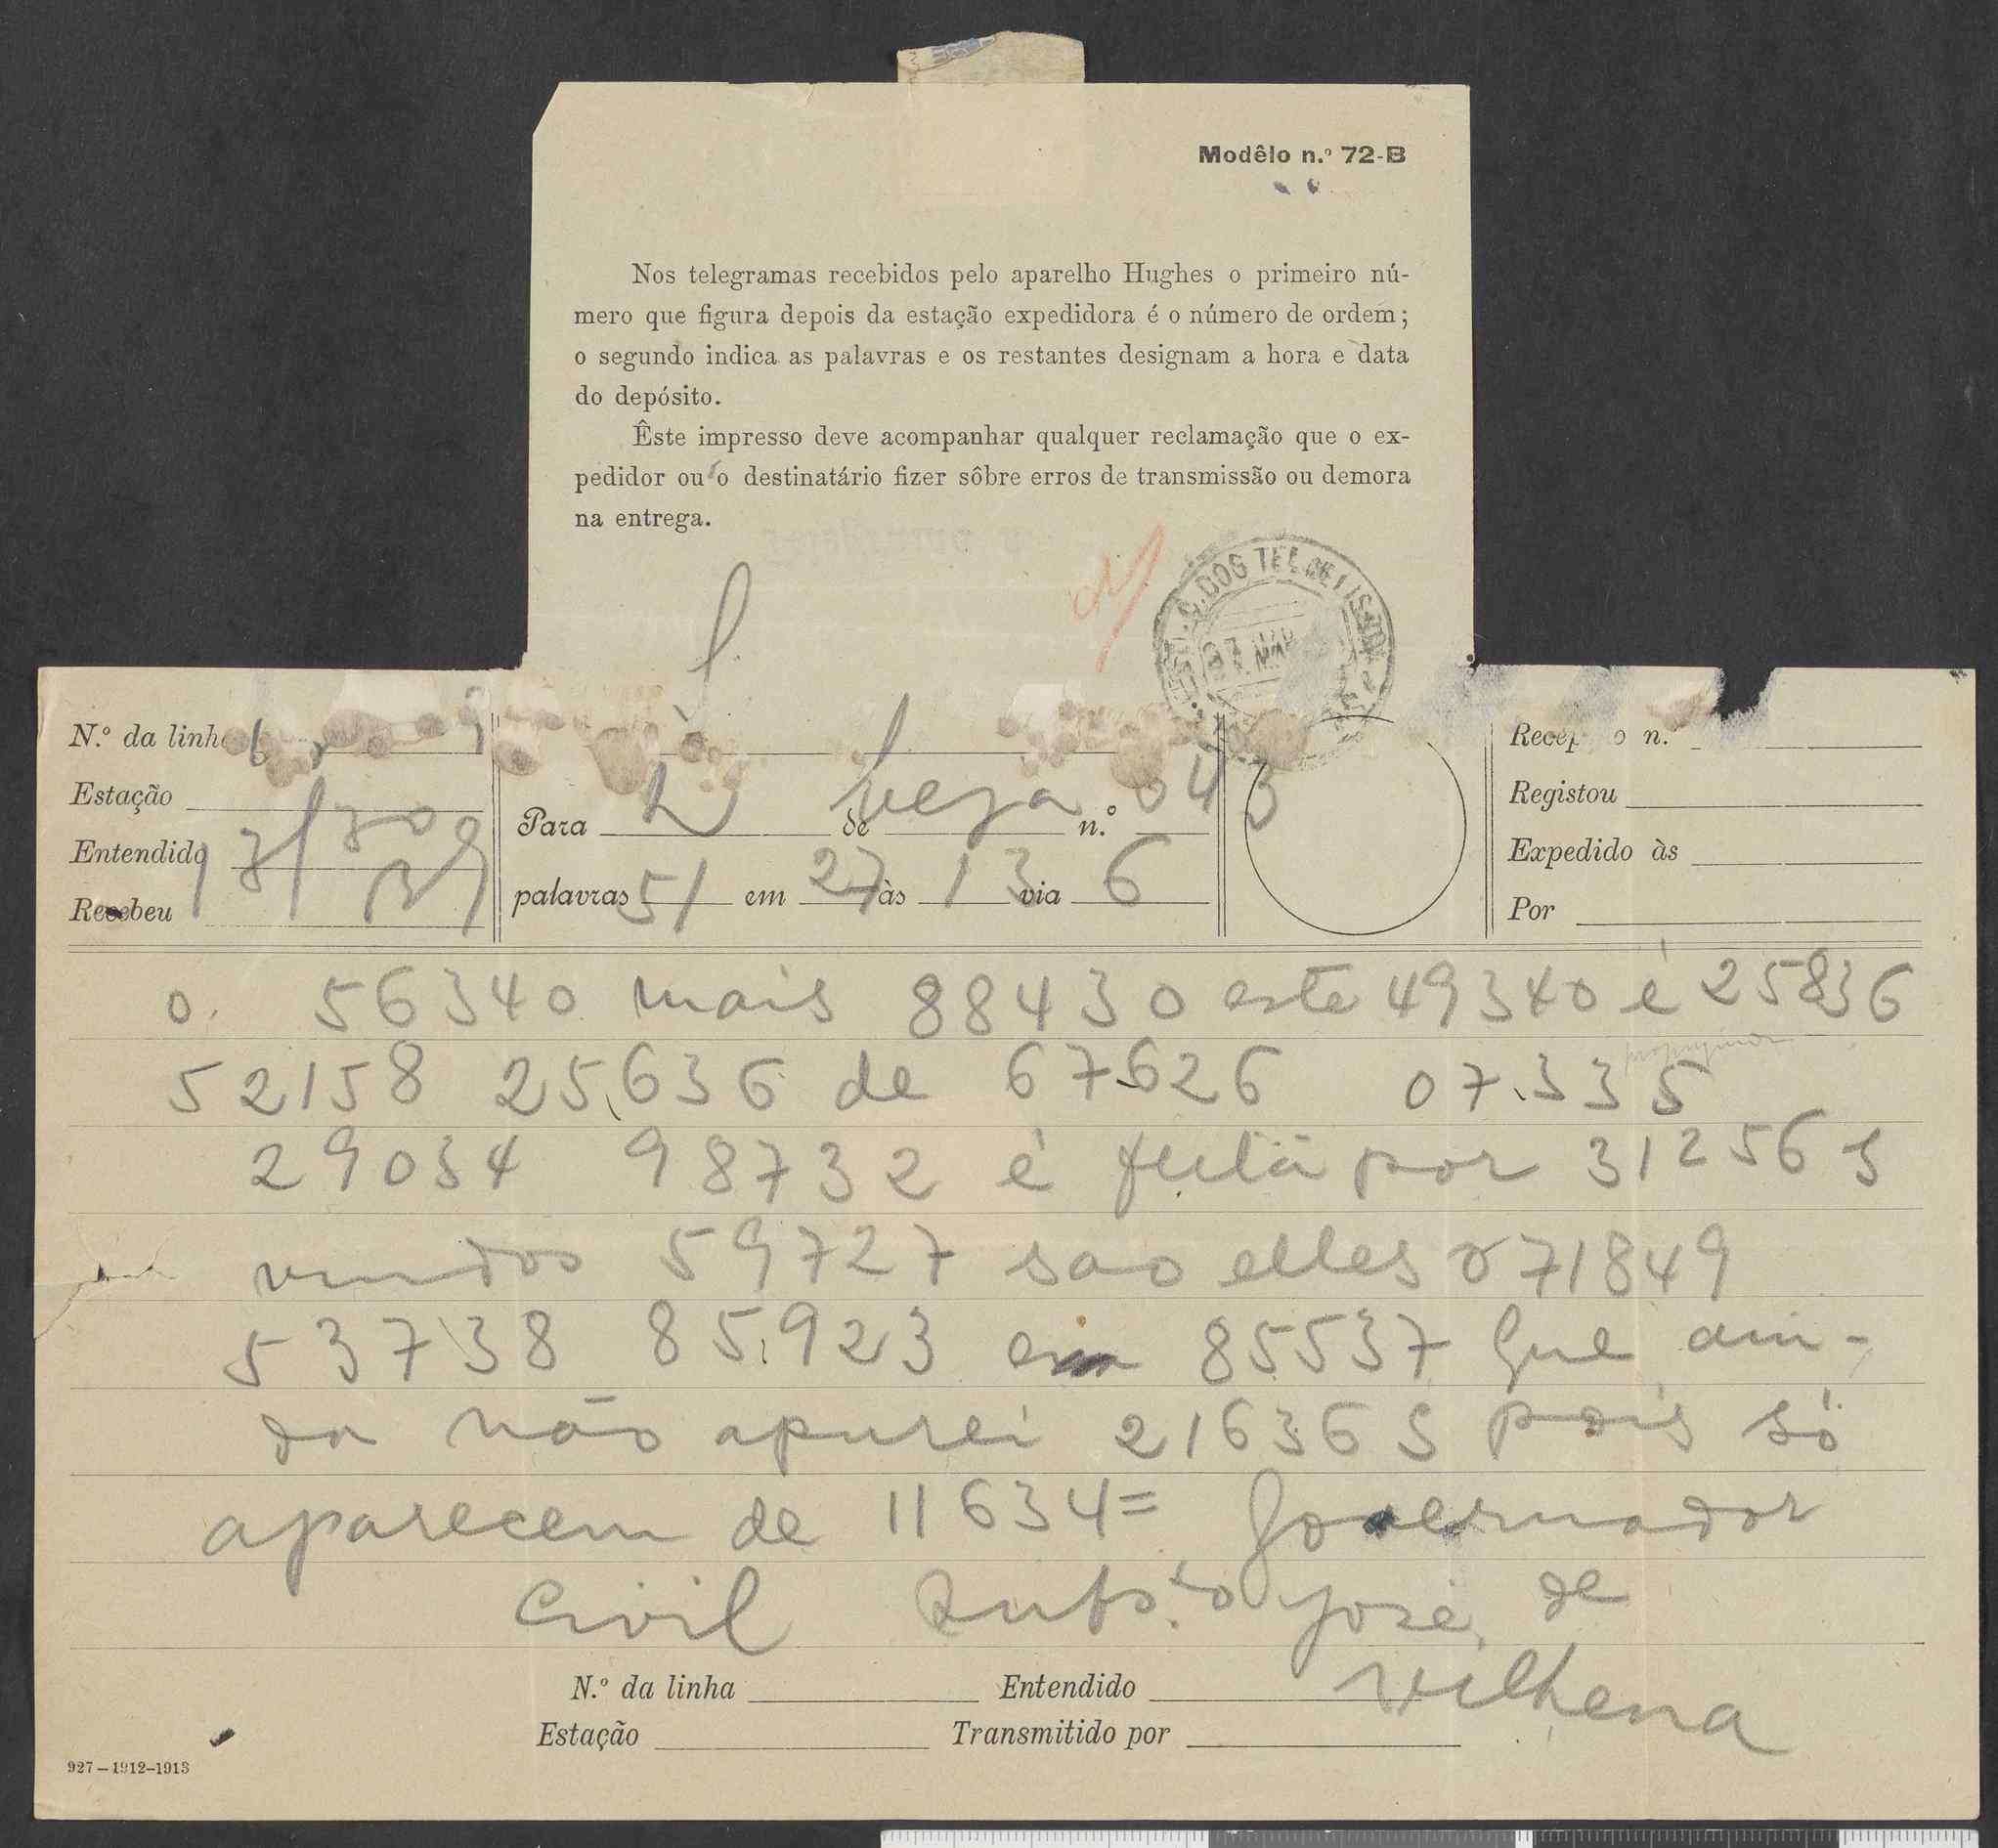 Modêlo n.º 72-B
Nos telegramas recebidos pelo aparelho Hughes o primeiro nú-
mero que figura depois da estação expedidora é o número de ordem;
o segundo indica as palavras e os restantes designam a hora e data
do depósito.
Êste impresso deve acompanhar qualquer reclamação que o ex-
pedidor ou o destinatário fizer sôbre erros de transmissão ou demora
na entrega.
DOS TEL
27 MAR
N.º da linha
Estação
Entendido
Recebeu
Para L de beja n.º 043
palavras 51 em 27 às 13 via 6
n.
Registou
Expedido às
Por
o. 56340 mais 88430 este 49340 é 25836
52158 25,636 de 67626 07.335
29034 98732 é feita por 31256 s
vindos 59727 sao elles 71849
53738 85.923 em 85537 que ain-
da não apurei 21636 S pois só
aparecem de 11634= Governador
Civil Subs.to José de
Vilhena
N.º da linha Entendido
Estação Transmitido por
927-1912-1913